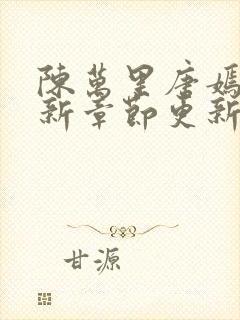 陳萬里唐嫣
新章節更新
甘源